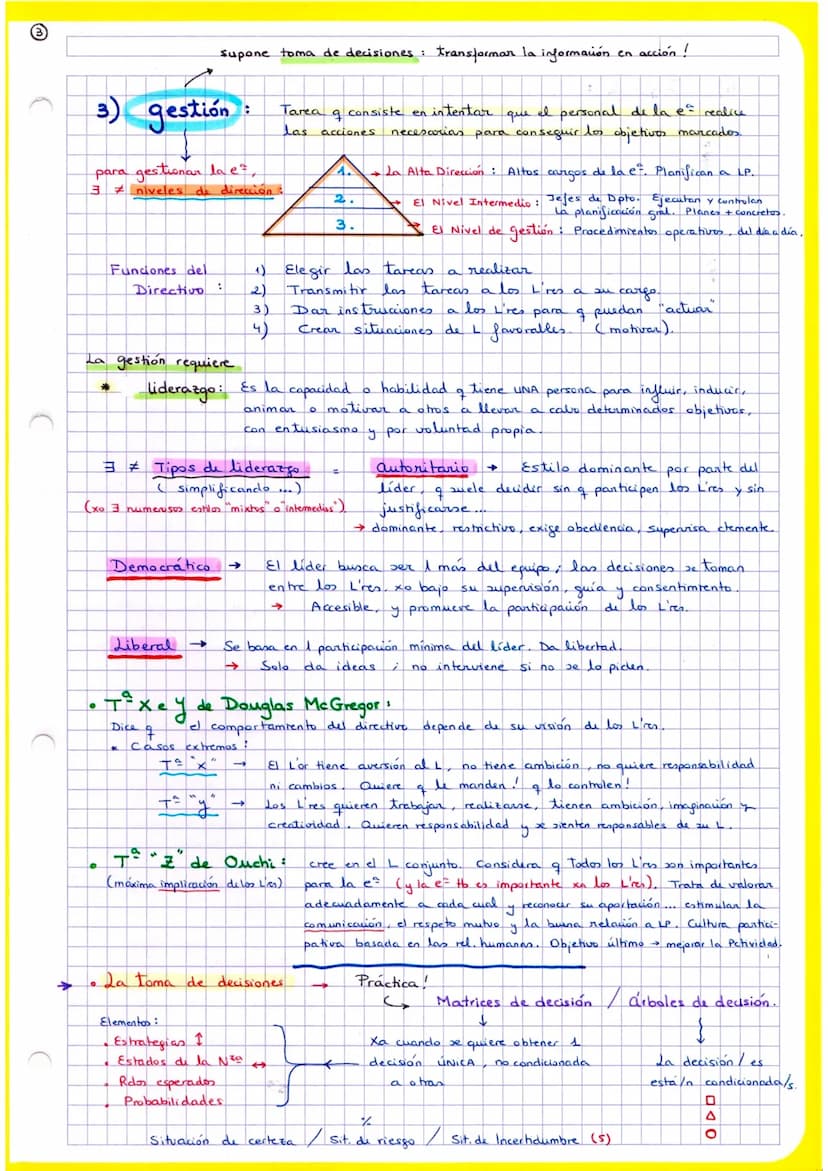 3
Supone toma de decisiones : transformar la información en acción !
3) gestión : Tarea q consiste en intentar que el personal de la eª realice
las acciones necesarias para conseguir los objetivos marcados.
para gestionar la eª,
∃ ≠ niveles de dirección :
1. → La Alta Dirección : Altos cargos de la eª. Planifican a LP.
2. El Nivel Intermedio : Jefes de Dpto. Ejecutan y controlan
la planificación gral. Planes + concretos.
3. El Nivel de gestión : Procedimientos operativos, del día a día.
Funciones del Directivo :
1) Elegir las tareas a realizar
2) Transmitir las tareas a los L'res a su cargo.
3) Dar instrucciones a los L'res para q puedan "actuar"
4) Crear situaciones de L favorables. (motivar).
La gestión requiere
* liderazgo : Es la capacidad o habilidad q tiene UNA persona para influir, inducir,
animar o motivar a otros a llevar a cabo determinados objetivos,
con entusiasmo y por voluntad propia.
∃ ≠ Tipos de liderazgo =
( simplificando ...)
(xo ∃ numerosos estilos "mixtos" o "intermedios")
autoritario → Estilo dominante por parte del
líder, q suele decidir sin q participen los L'res y sin
justificarse ...
→ dominante, restrictivo, exige obediencia, supervisa ctemente.
Democrático → El líder busca ser 1 más del equipo ; las decisiones se toman
entre los L'res. xo bajo su supervisión, guía y consentimiento.
→ Accesible, y promueve la participación de los L'res.
Liberal → Se basa en 1 participación mínima del líder. Da libertad.
→ Solo da ideas ; no interviene si no se lo piden.
• Tª X e Y de Douglas McGregor :
Dice q el comportamiento del directivo depende de su visión de los L'res.
* Casos extremos :
Tª "x" → El L'or tiene aversión al L, no tiene ambición, no quiere responsabilidad
ni cambios. Quiere q le manden ! q lo controlen !
Tª "y" → Los L'res quieren trabajar, realizarse, tienen ambición, imaginación y
creatividad. Quieren responsabilidad y se sienten responsables de su L.
• Tª "Z" de Ouchi : cree en el L conjunto. Considera q Todos los L'res son importantes
(máxima implicación de los L'res) para la eª (y la eª tb es importante xa los L'res). Trata de valorar
adecuadamente a cada cual y reconocer su aportación ... estimular la
comunicación, el respeto mutuo y la buena relación a LP. Cultura partici-
pativa basada en las rel. humanas. Objetivo último → mejorar la Pctividad.
→ • La toma de decisiones → Práctica !
Matrices de decisión / árboles de decisión.
Elementos :
• Estrategias ↕
• Estados de la Nza ↔
• Rdos esperados
• Probabilidades
Xa cuando se quiere obtener 1
decisión ÚNICA, no condicionada
a otras
La decisión / es
está/n condicionada/s.
□
△
○
%
Situación de certeza / Sit. de riesgo / Sit. de Incertidumbre (5)